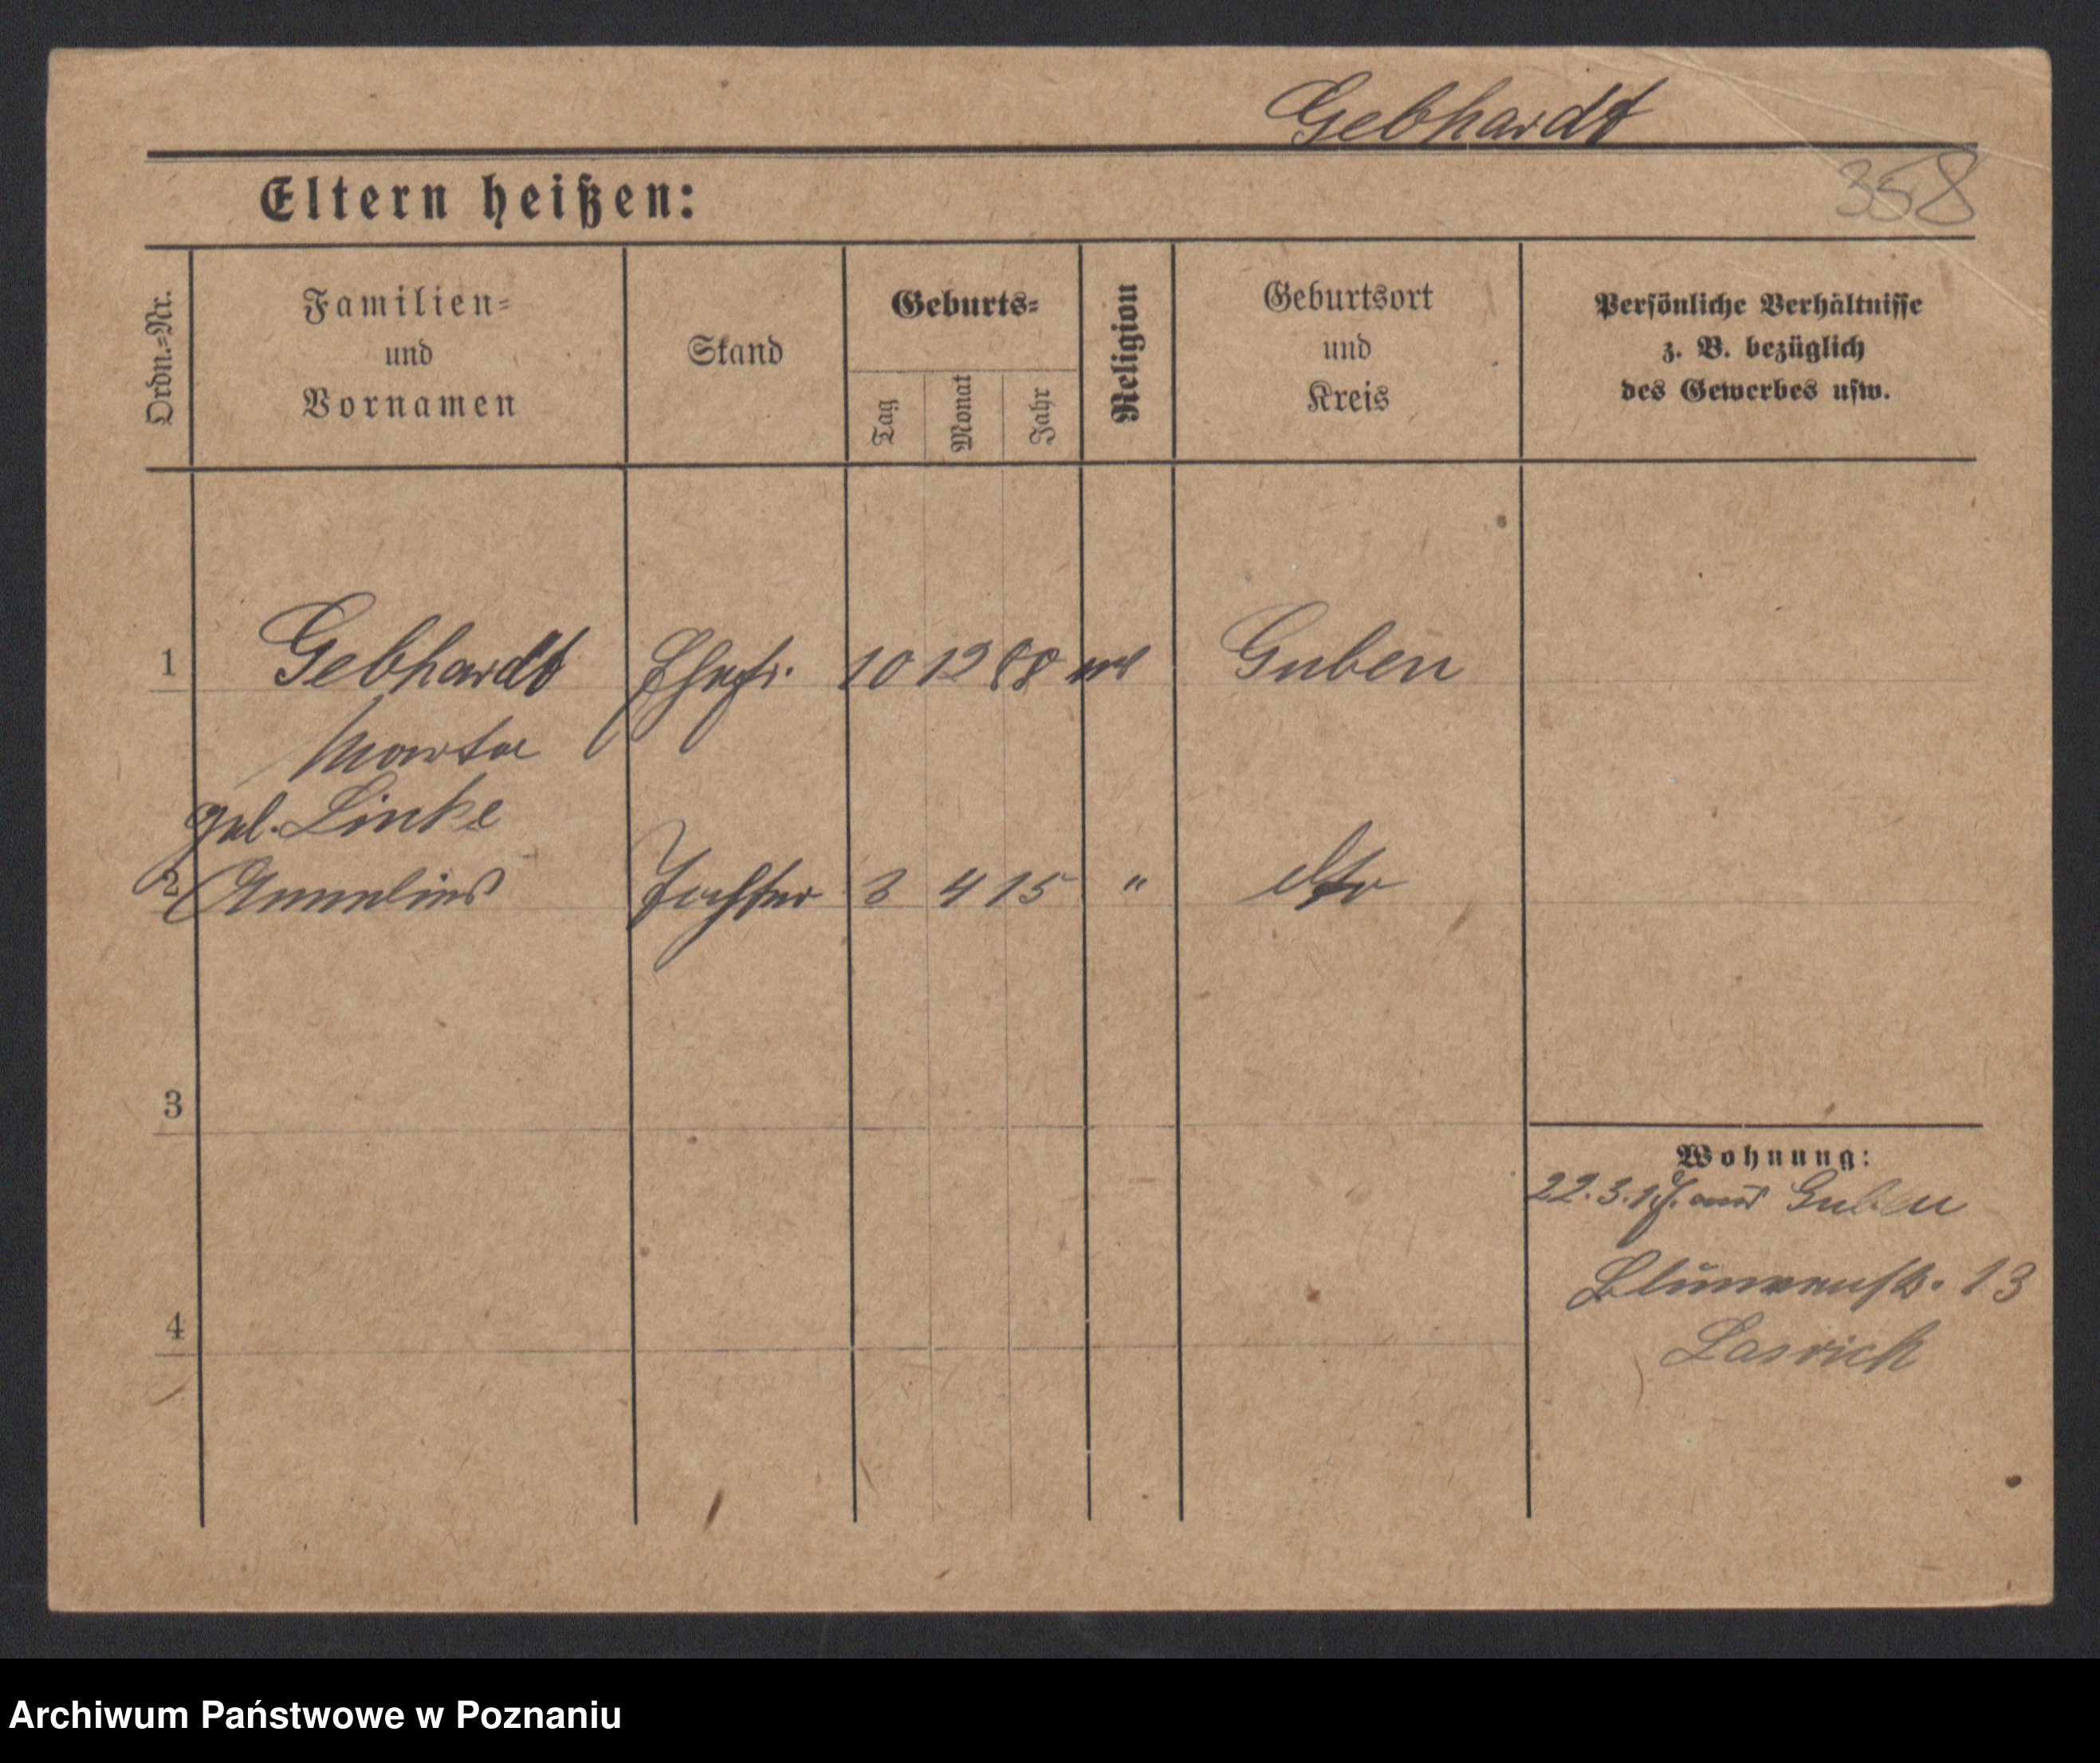 Gebhardt
358
Eltern heißen:
Ordn.=Nr.
Familien=
und
Vornamen
Stand
Geburts=
Tag
Monat
Jahr
Religion
Geburtsort
und
Kreis
Persönliche Verhältnisse
z. B. bezüglich
des Gewerbes usw.
1 Gebhardt Ehefr. 10 12 88 Guben
Marta
geb. Linke
2 Annelies Tochter 3 4 15 " dto
3
4
Wohnung:
22.3.17. aus Guben
Blumenstr. 13
Archiwum Państwowe w Poznaniu